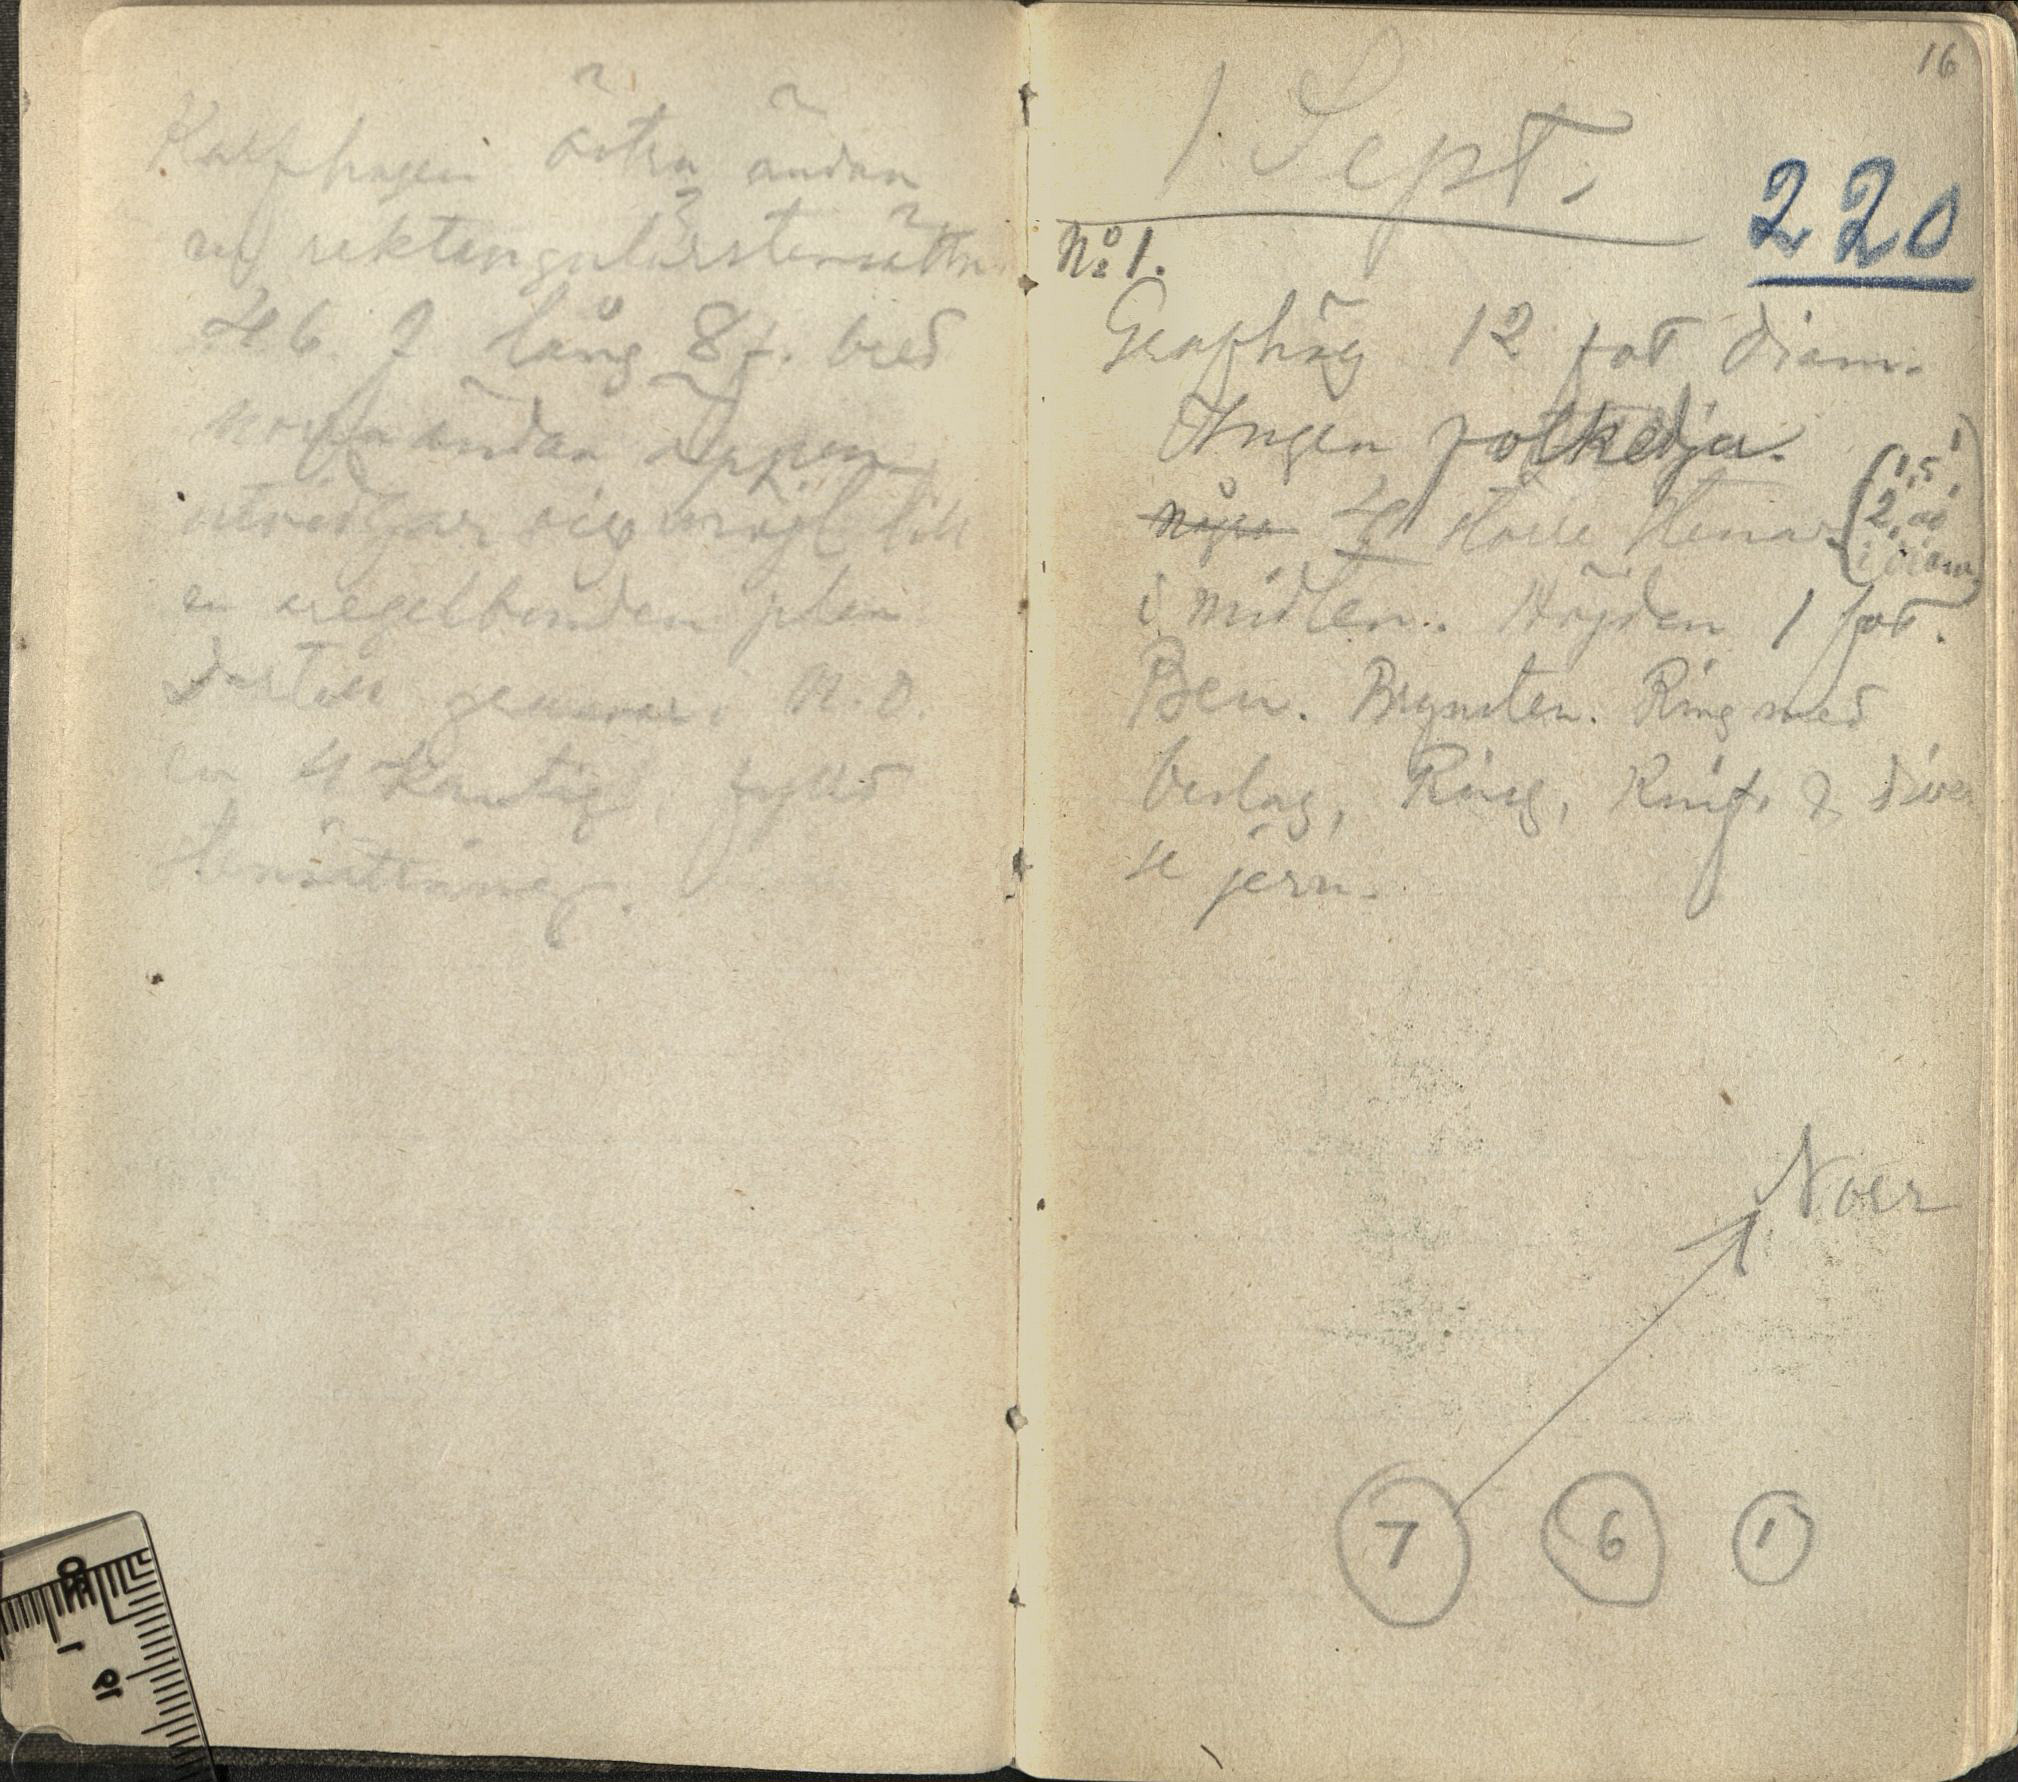 Kalfhagen östra ändan
en rektangulär stensättn.
46 f lång 8 f. bred
norra ändan öppen
utvidgar sig möjl till
en oregelbunden plan
Dertill genear i N.O.
en 4 kantig, fylld
stensättning.
16
1 Sept.
220
No 1.
Grafhög 12 fot diam.
Ingen fotkedja.
några 4 större stenar (1,5'
2,00
i diam)
i midten. Höjden 1 fot.
Ben. Brynsten. Ring med
beslag, Ring, Knif, & diver
se jern.
Norr
7 6 1